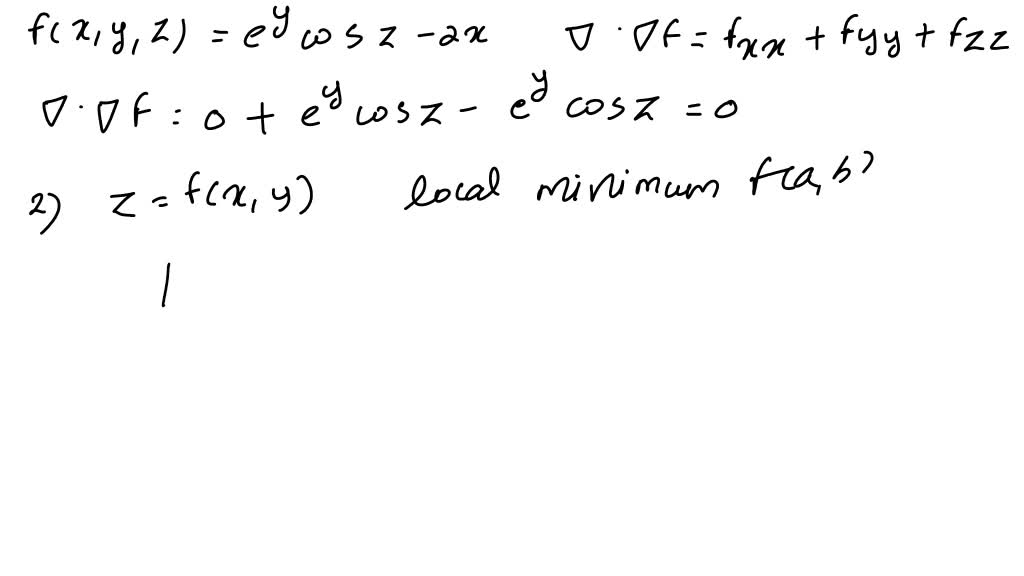 f(x, y, z) = e^y cos z - 2x ∇ · ∇f = fxx + fyy + fzz
∇ · ∇f = 0 + e^y cos z - e^y cos z = 0
2) z = f(x, y) local minimum f(a, b)
|